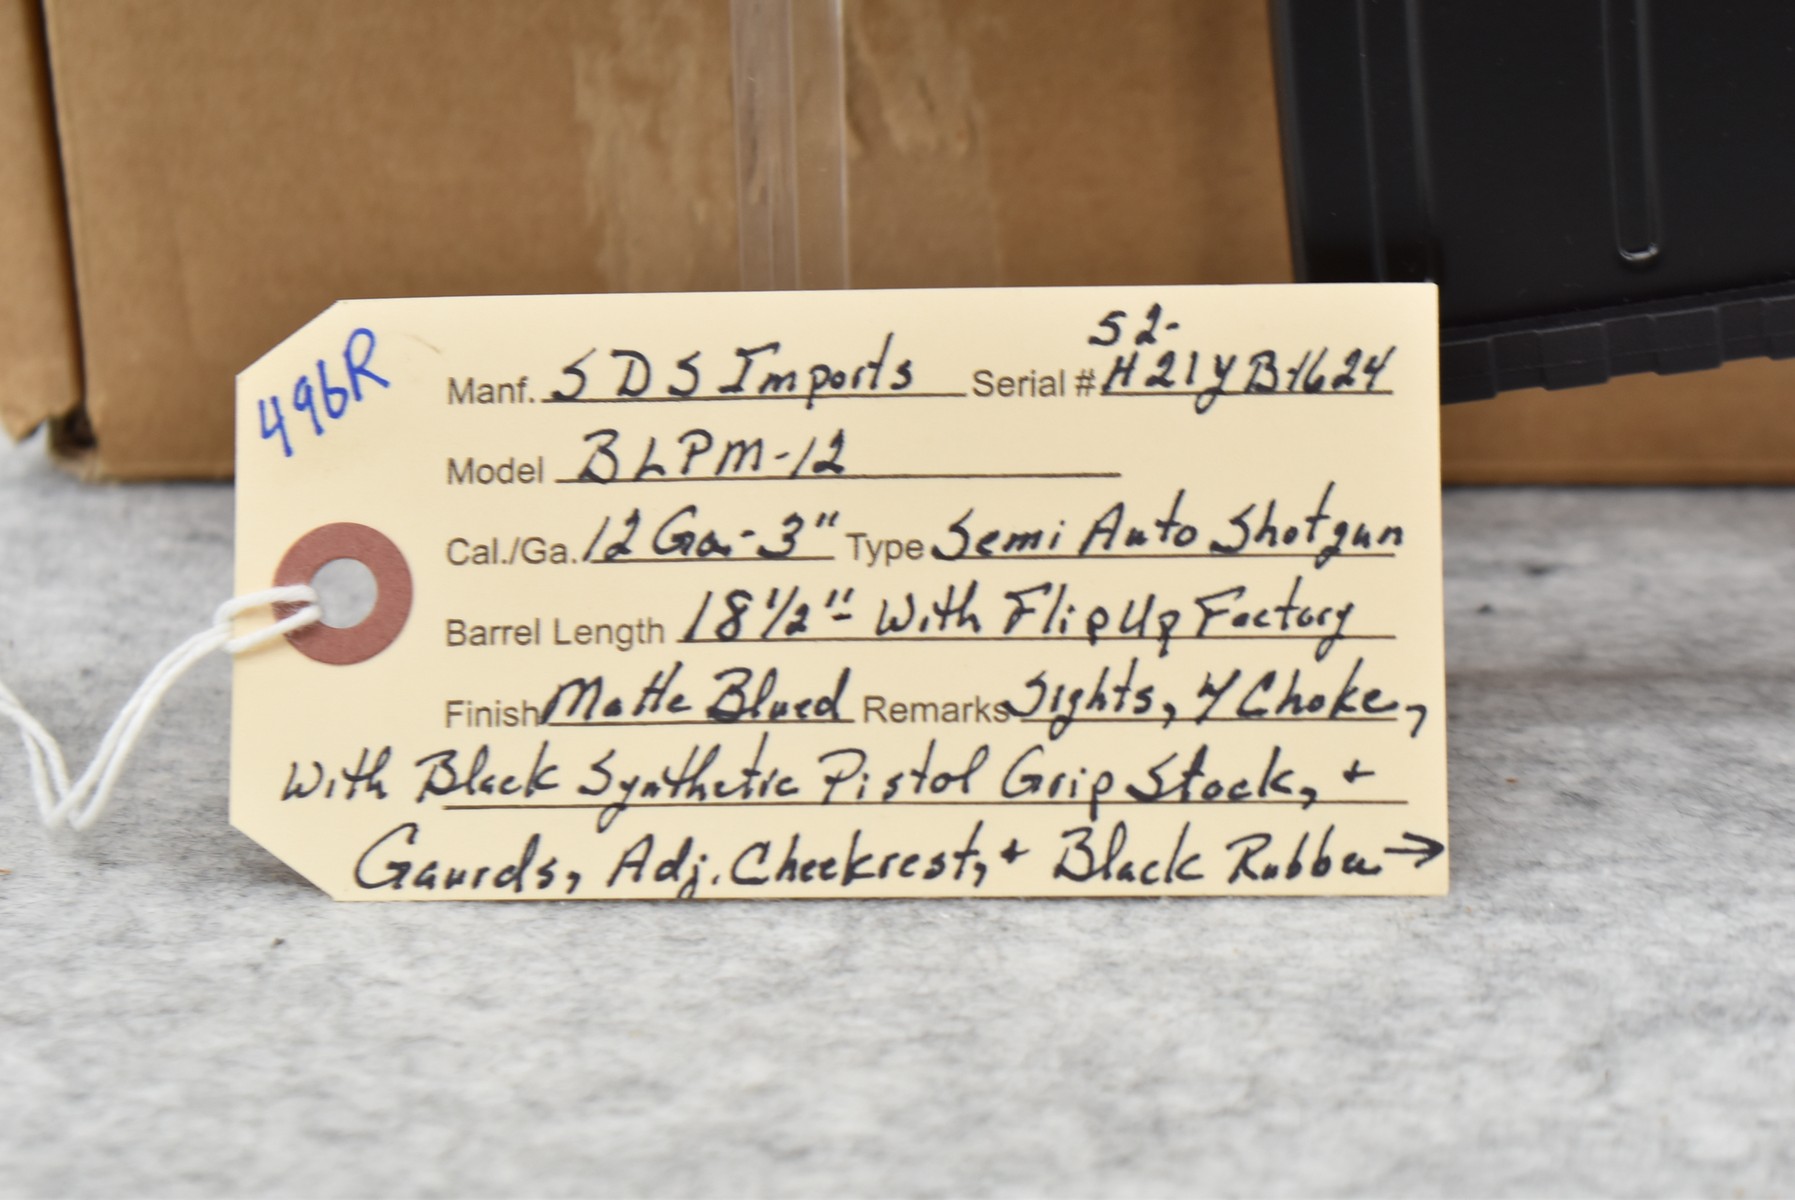 496R
52-
Manf. SDS Imports Serial # H21YB1624
Model BLPM-12
Cal./Ga. 12 Ga.-3" Type Semi Auto Shotgun
Barrel Length 18 1/2" With Flip Up Factory
Finish Matte Blued Remarks Sights, 4 Choke,
With Black Synthetic Pistol Grip Stock, +
Gaurds, Adj. Cheekrest, + Black Rubber →